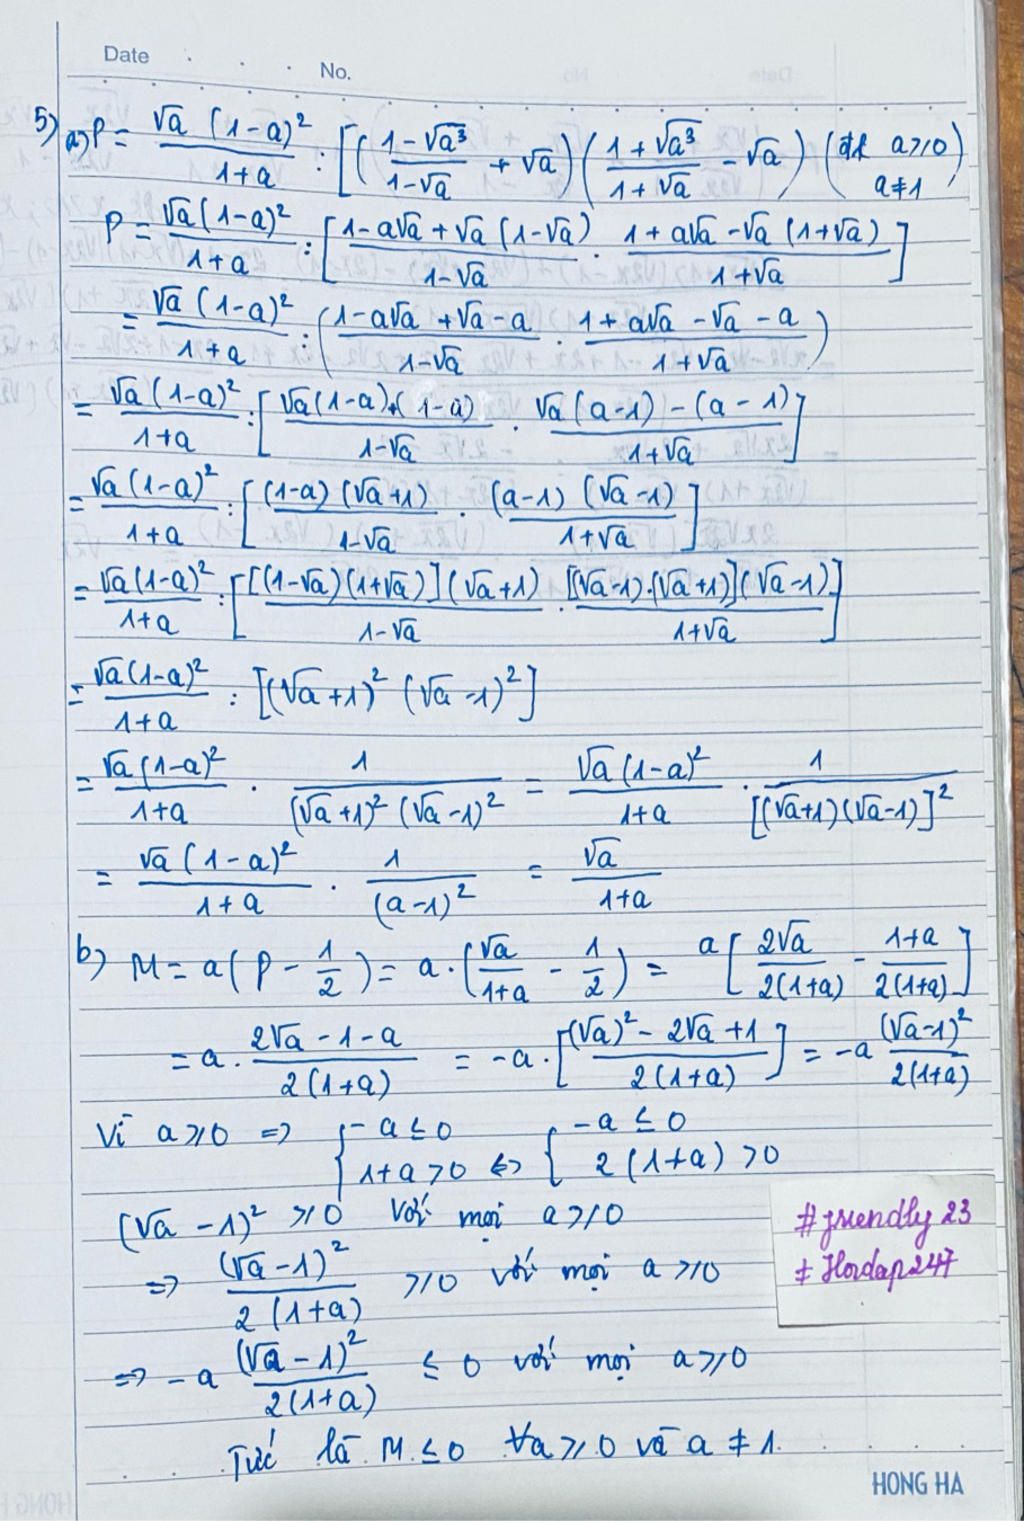 Date
No.
5) a) P = √a (1-a)² / 1+a : [(1-√a³ / 1-√a + √a)(1+√a³ / 1+√a - √a) (đk a≥0 a≠1)
P = √a(1-a)² / 1+a : [1-a√a+√a(1-√a) / 1-√a . 1+a√a-√a(1+√a) / 1+√a]
= √a(1-a)² / 1+a : (1-a√a+√a-a / 1-√a . 1+a√a-√a-a / 1+√a)
= √a(1-a)² / 1+a : [√a(1-a)+(1-a) / 1-√a . √a(a-1)-(a-1) / 1+√a]
= √a(1-a)² / 1+a : [(1-a)(√a+1) / 1-√a . (a-1)(√a-1) / 1+√a]
= √a(1-a)² / 1+a : [[(1-√a)(1+√a)](√a+1) / 1-√a . [(√a-1).(√a+1)](√a-1) / 1+√a]
= √a(1-a)² / 1+a : [(√a+1)² (√a-1)²]
= √a(1-a)² / 1+a . 1 / (√a+1)² (√a-1)² = √a(1-a)² / 1+a . 1 / [(√a+1)(√a-1)]²
= √a(1-a)² / 1+a . 1 / (a-1)² = √a / 1+a
b) M = a(P - 1/2) = a.(√a / 1+a - 1/2) = a[2√a / 2(1+a) - 1+a / 2(1+a)]
= a. 2√a-1-a / 2(1+a) = -a.[(√a)²-2√a+1 / 2(1+a)] = -a (√a-1)² / 2(1+a)
Vì a≥0 => { -a≤0 1+a>0 <=> { -a≤0 2(1+a)>0
(√a-1)² ≥0 với mọi a≥0
=> (√a-1)² / 2(1+a) ≥0 với mọi a≥0
=> -a (√a-1)² / 2(1+a) ≤ 0 với mọi a≥0
Tức là M≤0 ∀a≥0 và a≠1.
#friendly23
# Hoidap247
HONG HA